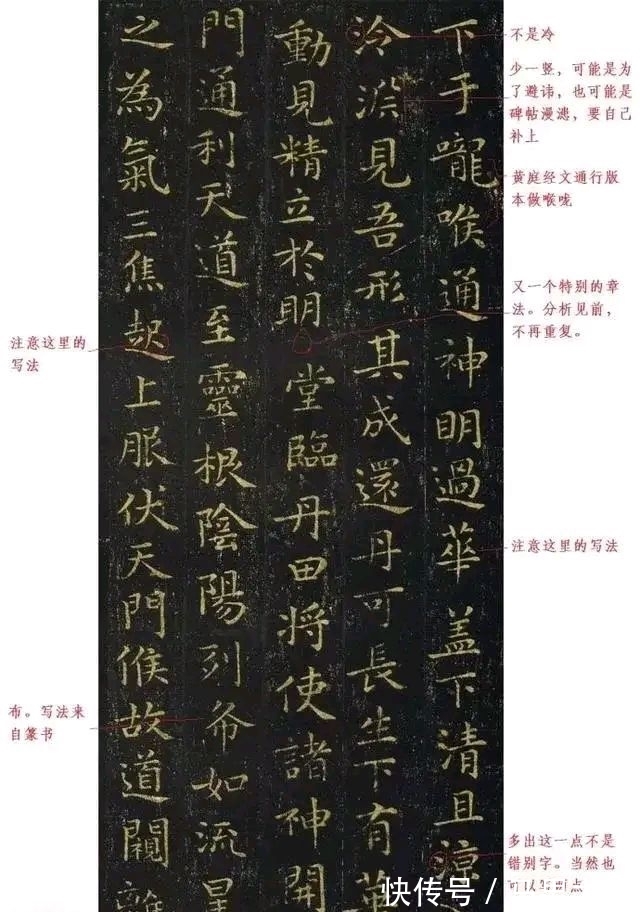 下于嚨喉通神明過華蓋下清且涼
泠淵見吾形其成還丹可長生下有華
動見精立於明堂臨丹田將使諸神開
門通利天道至靈根陰陽列布如流星
之為氣三焦起上服伏天門候故道闚離
不是冷
少一竖，可能是为
了避讳，也可能是
碑帖漫漶，要自己
补上
黄庭经文通行版
本做喉咙
又一个特别的章
法。分析见前，
不再重复。
注意这里的写法
多出这一点不是
错别字。当然也
可以
注意这里的
写法
布。写法来
自篆书
快传号／